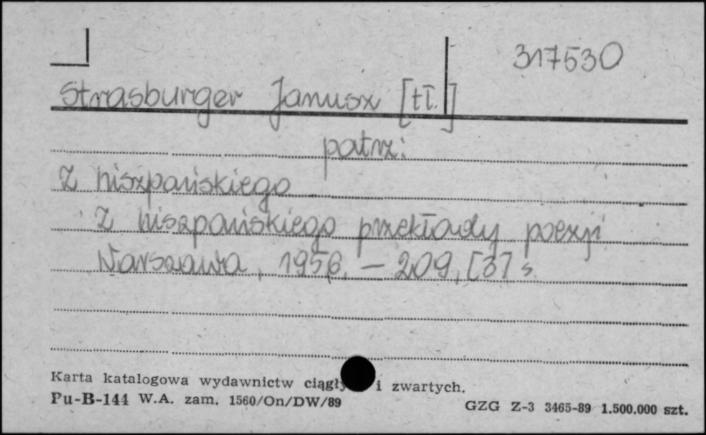 317530
Strasburger Janusz [tł.]
patrz:
Z hiszpańskiego
Z hiszpańskiego przekłady poezji
Warszawa, 1956. – 209, [3] s.
Karta katalogowa wydawnictw ciągły i zwartych.
Pu-B-144 W.A. zam. 1560/On/DW/89
GZG Z-3 3465-89 1.500.000 szt.